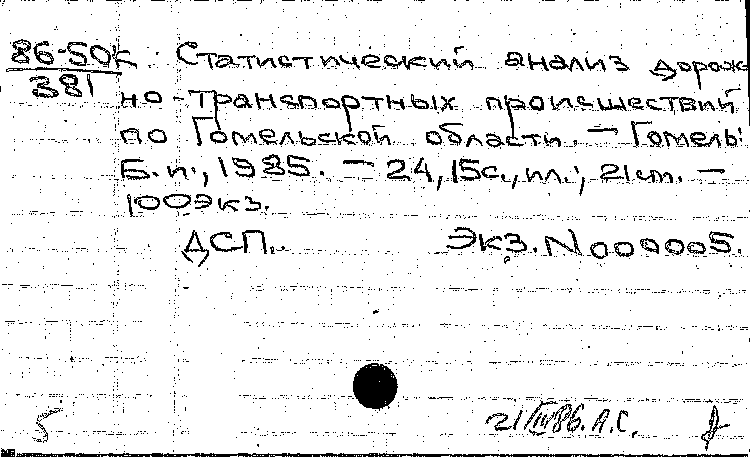 86-50К Статистический анализ дорож-
381 но-транспортных происшествий
по Гомельской области. — Гомель:
Б.и., 1985. — 24,15с., ил.; 21см. —
100экз.
ДСП. Экз. N 000005.
5 21/III 86. Л.С.